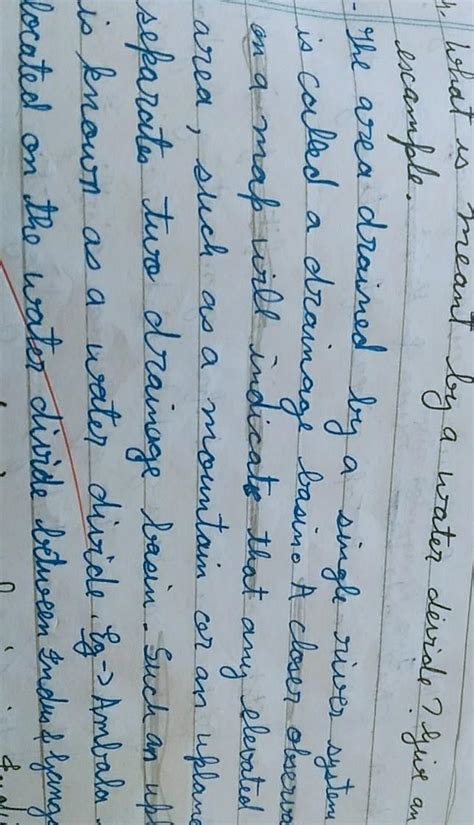 4. What is meant by a water devide? Give an
escample.
- The area drained by a single river system
is called a drainage basin. A closer observa
on a map will indicate that any elevated
area, such as a mountain or an uplan
separates two drainage basin. Such an upl
is known as a water divide. Eg -> Ambala
located on the water divide between Indus &